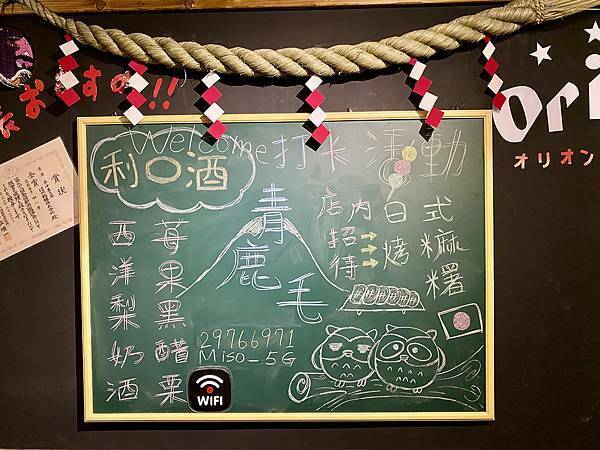 おすすめ!!
ori
オリオン
賞状
Welcome 打米活動
利口酒
青鹿毛
店內招待
日式烤麻糬
西洋梨奶酒
莓果黑醋栗
29766971
Miso_5G
WIFI